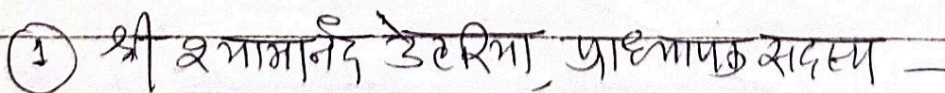 ① श्री श्यामानंद डेहरिया, प्राध्यापक सदस्य —